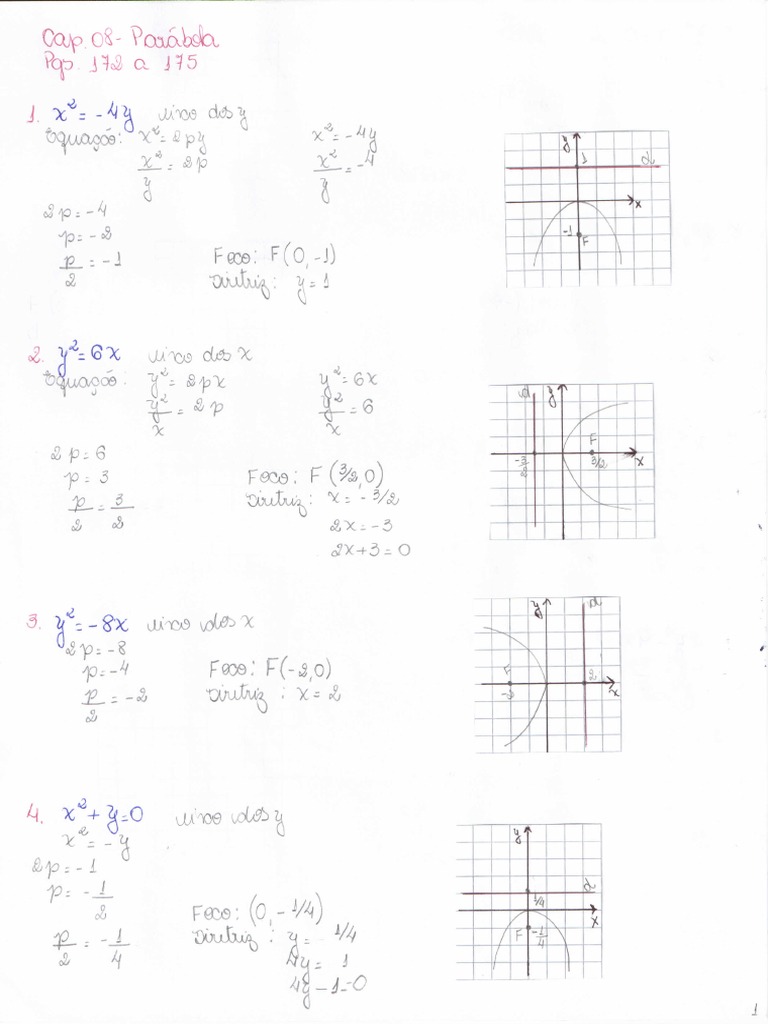 Cap. 08 - Parábola
Pgs. 172 a 175
1. x² = -4y eixo dos y
Equação: x² = 2py x² = -4y
x²/y = 2p x²/y = -4
2p = -4
p = -2
p/2 = -1
Foco: F(0, -1)
Diretriz: y = 1
y 1 d
x
-1 F
2. y² = 6x eixo dos x
Equação: y² = 2px y² = 6x
y²/x = 2p y²/x = 6
2p = 6
p = 3
p/2 = 3/2
Foco: F(3/2, 0)
Diretriz: x = -3/2
2x = -3
2x+3 = 0
d y
F
-3/2 3/2 x
3. y² = -8x eixo dos x
2p = -8
p = -4
p/2 = -2
Foco: F(-2, 0)
Diretriz: x = 2
y d
F
-2 2 x
4. x² + y = 0 eixo dos y
x² = -y
2p = -1
p = -1/2
p/2 = -1/4
Foco: (0, -1/4)
Diretriz: y = 1/4
4y = 1
4y - 1 = 0
y
1/4 d
x
F -1/4
1